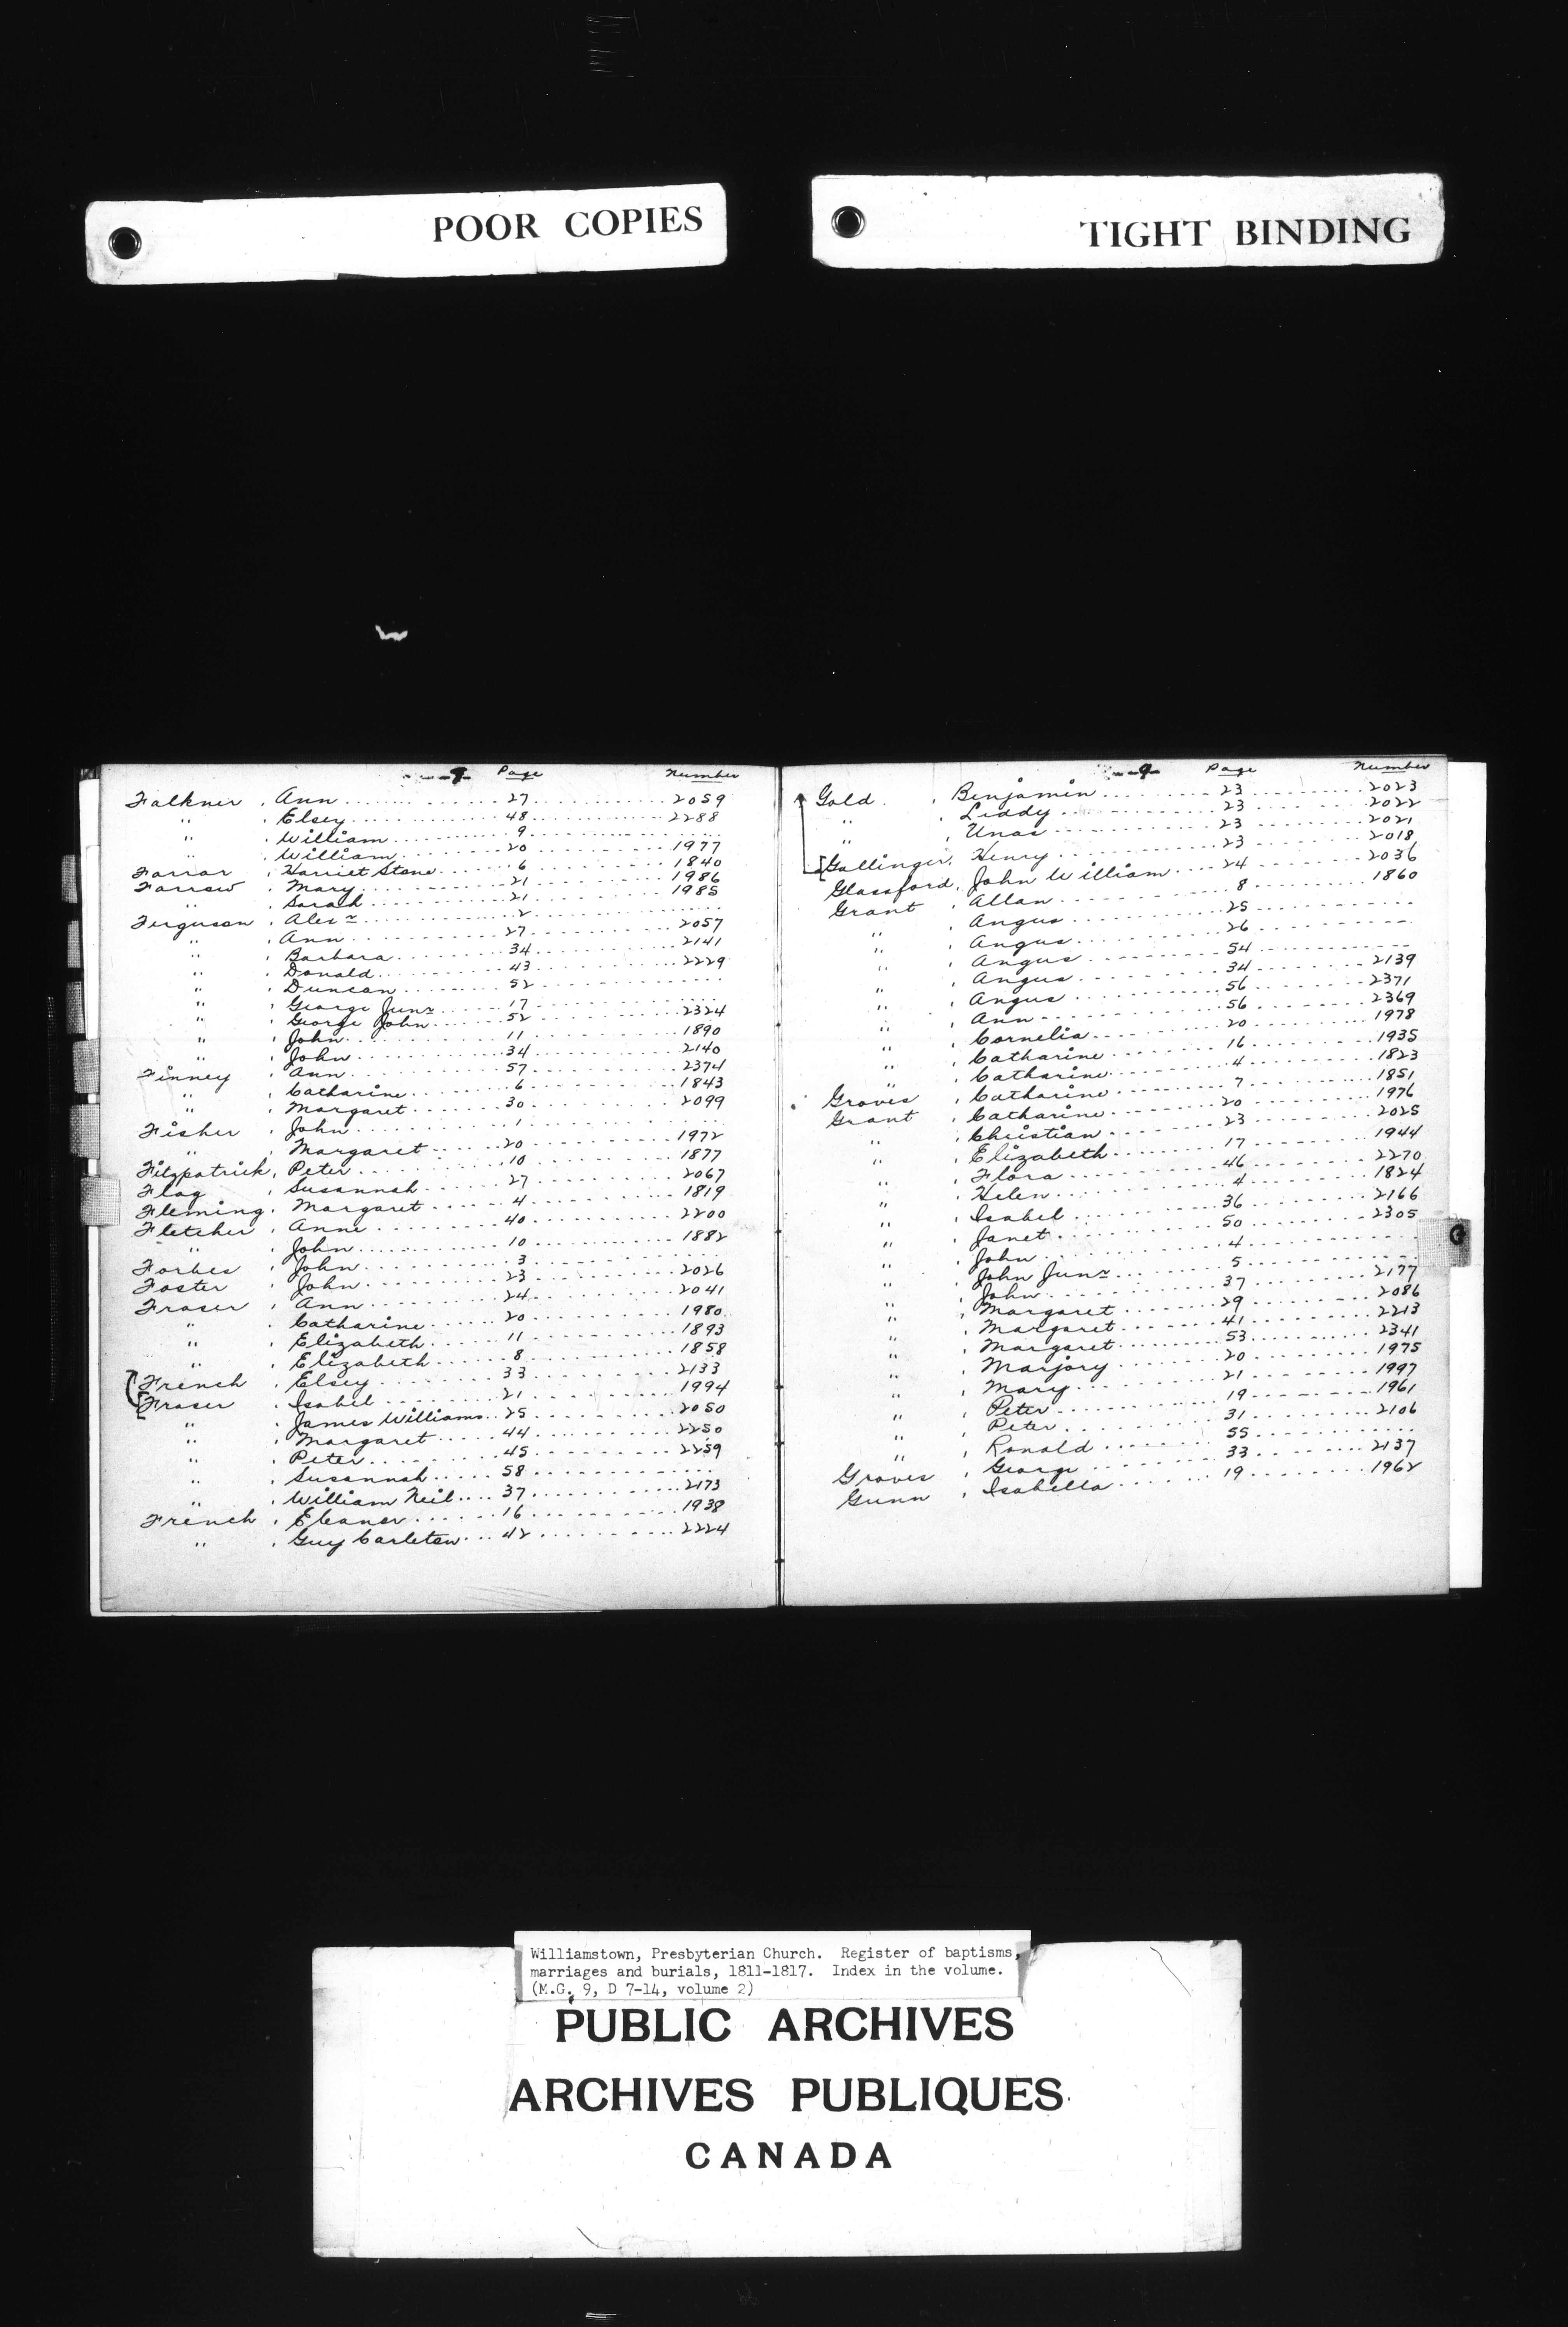 POOR COPIES
TIGHT BINDING
Page Number
Falkner, Ann 27 2059
" , Elsey 48 2288
" , William 9
" , William 20 1977
Farrar, Harriet Stone 6 1840
Farrow, Mary 21 1986
" , Sarah 21 1985
Ferguson, Alexr 2
" , Ann 27 2057
" , Barbara 34 2141
" , Donald 43 2229
" , Duncan 52
" , George Junr 17
" , George John 52 2324
" , John 11 1890
" , John 34 2140
Finney, Ann 57 2374
" , Catharine 6 1843
" , Margaret 30 2099
Fisher, John 1
" , Margaret 20 1972
Fitzpatrick, Peter 10 1877
Flag, Susannah 27 2067
Fleming, Margaret 4 1819
Fletcher, Anne 40 2200
" , John 10 1882
Forbes, John 3
Foster, John 23 2026
Fraser, Ann 24 2041
" , Catharine 20 1980
" , Elizabeth 11 1893
" , Elizabeth 8 1858
French, Elsey 33 2133
Fraser, Isabel 21 1994
" , James Williams 25 2050
" , Margaret 44 2250
" , Peter 45 2259
" , Susannah 58
" , William Neil 37 2173
French, Eleanor 16 1938
" , Guy Carleton 42 2224
9 Page Number
Gold, Benjamin 23 2023
" , Liddy 23 2022
" , Unas 23 2021
Gallinger, Henry 23 2018
Glassford, John William 24 2036
Grant, Allan 8 1860
" , Angus 25
" , Angus 26
" , Angus 54
" , Angus 34 2139
" , Angus 56 2371
" , Ann 56 2369
" , Cornelia 20 1978
" , Catharine 16 1935
" , Catharine 4 1823
Groves, Catharine 7 1851
Grant, Catharine 20 1976
" , Christian 23 2025
" , Elizabeth 17 1944
" , Flora 46 2270
" , Helen 4 1824
" , Isabel 36 2166
" , Janet 50 2305
" , John 4
" , John Junr 5
" , John 37 2177
" , Margaret 29 2086
" , Margaret 41 2213
" , Margaret 53 2341
" , Marjory 20 1975
" , Mary 21 1997
" , Peter 19 1961
" , Peter 31 2106
" , Ronald 55
Groves, George 33 2137
Gunn, Isabella 19 1962
G
Williamstown, Presbyterian Church. Register of baptisms,
marriages and burials, 1811-1817. Index in the volume.
(M.G. 9, D 7-14, volume 2)
PUBLIC ARCHIVES
ARCHIVES PUBLIQUES
CANADA